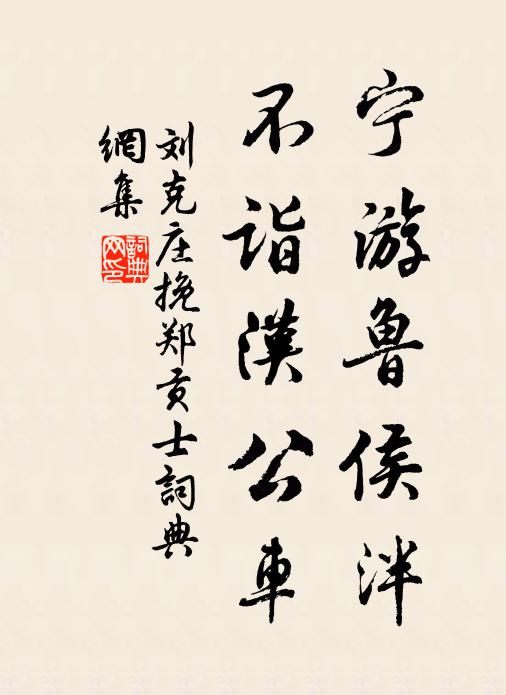 宁游鲁侯泮
不诣漢公車
刘克庄挽郑贡士詞典
網集
詞典
网印